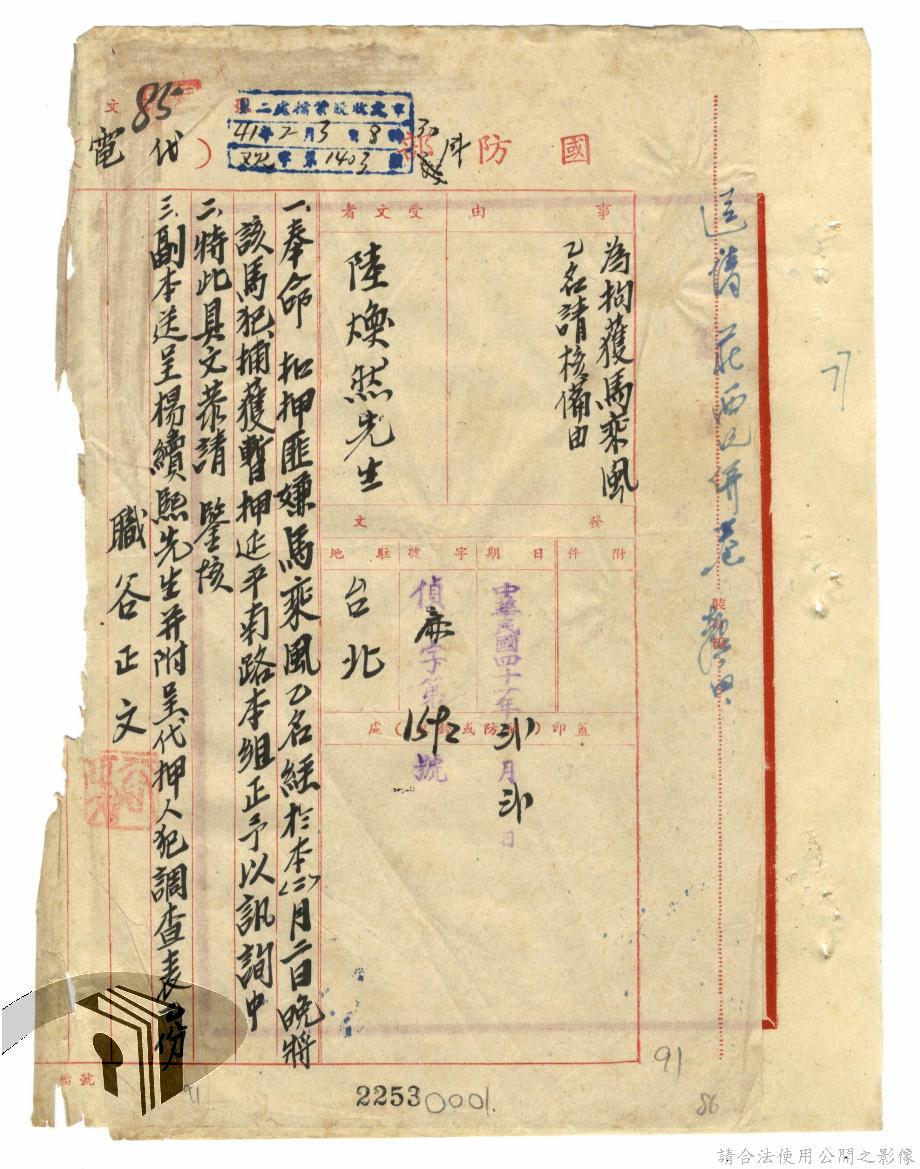 國防部
代電
85
市文收發檔處二第
41年2月3日8時30
字第1403號
事由
為拘獲馬乘風
乙名請核備由
受文者
陸煥然先生
發文
附件
日期
中華民國四十一年 月 日
字號
偵 字第1592號
駐地
台北
蓋印(或 防)處
一、奉命 扣押匪嫌馬乘風乙名經於本(二)月二日晚將
該馬犯捕獲暫押延平南路本組正予以訊詢中
二、特此具文恭請 鑒核
三、副本送呈楊續熙先生并附呈代押人犯調查表乙份
職谷正文
號
91
2253
0001
86
請合法使用公開之影像